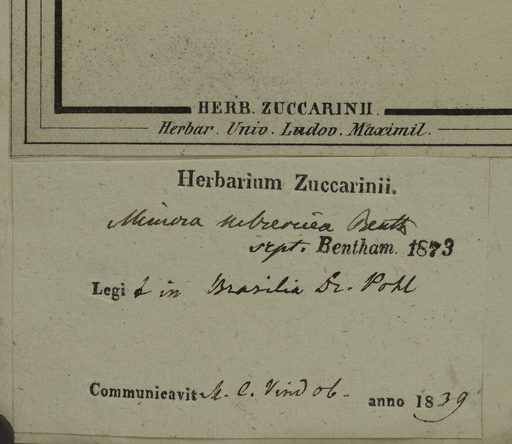 HERB. ZUCCARINII.
Herbar. Univ. Ludov. Maximil.
Herbarium Zuccarinii.
Mimosa Benth
sept. Bentham. 1873
Legit in Brasilia Dr. Pohl
Communicavit M. C. Vindob. anno 1839